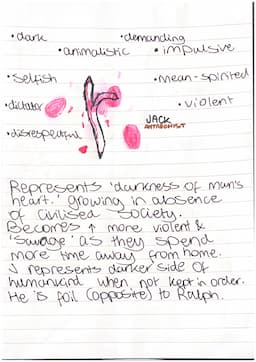 •dark
•demanding
•animalistic
•impulsive
•selfish
•mean-spirited
•dictator
•violent
•disrespectful
JACK
ANTAGONIST
Represents 'darkness of man's
heart.' growing in absence
of civilised society.
Becomes ↑ more violent &
'savage' as they spend
more time away from home.
J represents darker side of
humankind when not kept in order.
He is foil (opposite) to Ralph.